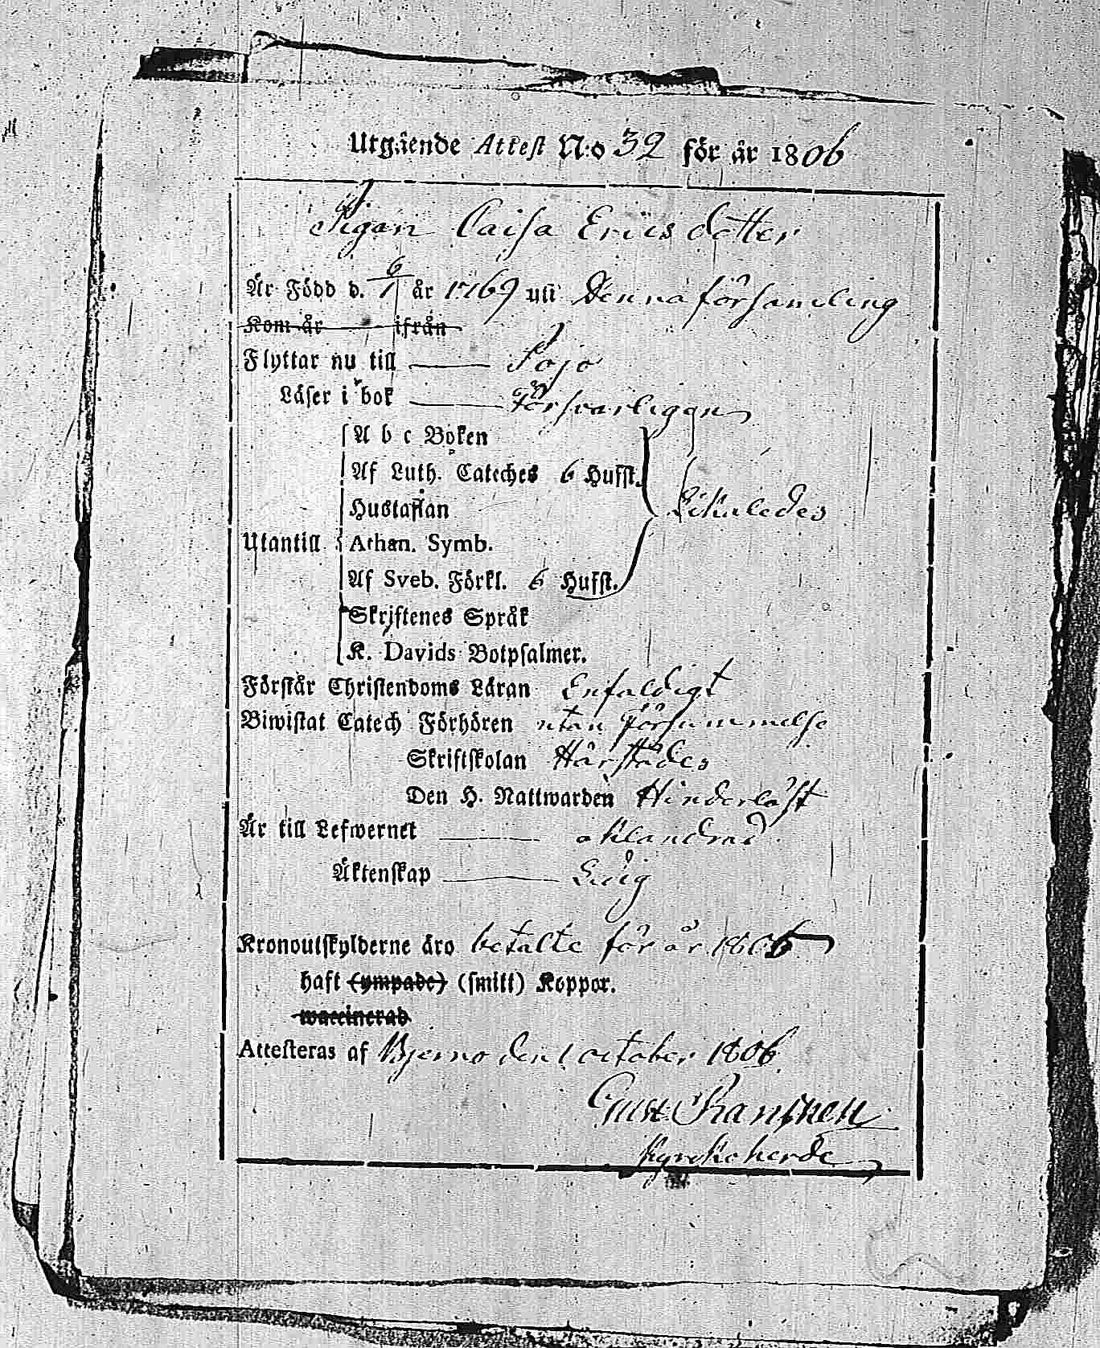 Utgående Attest N:o 32 för år 1806
Pigan Caisa Erics dotter
Är Född d. 6/1 år 1769 uti Denna församling
Kom år ifrån
Flyttar nu till Pojo
Läser i bok Försvarligen
A b c Boken
Af Luth. Cateches 6 Hufst.
Hustaflan Likaledes
Utantill Athan. Symb.
Af Sveb. Förkl. 6 Hufst.
Skriftenes Språk
K. Davids Botpsalmer.
Förstår Christendoms Läran Enfaldigt
Biwistat Catech Förhören utan försummelse
Skriftskolan Härstädes
Den H. Nattwarden Hinderlöst
Är till Lefwernet oklandrad
Äktenskap Ledig
Kronoutskylderne äro betalte för år 1806
haft (ympade) (smitt) Koppor.
waccinerad
Attesteras af Bjerno den 1 october 1806
Gust
Kyrkoherde